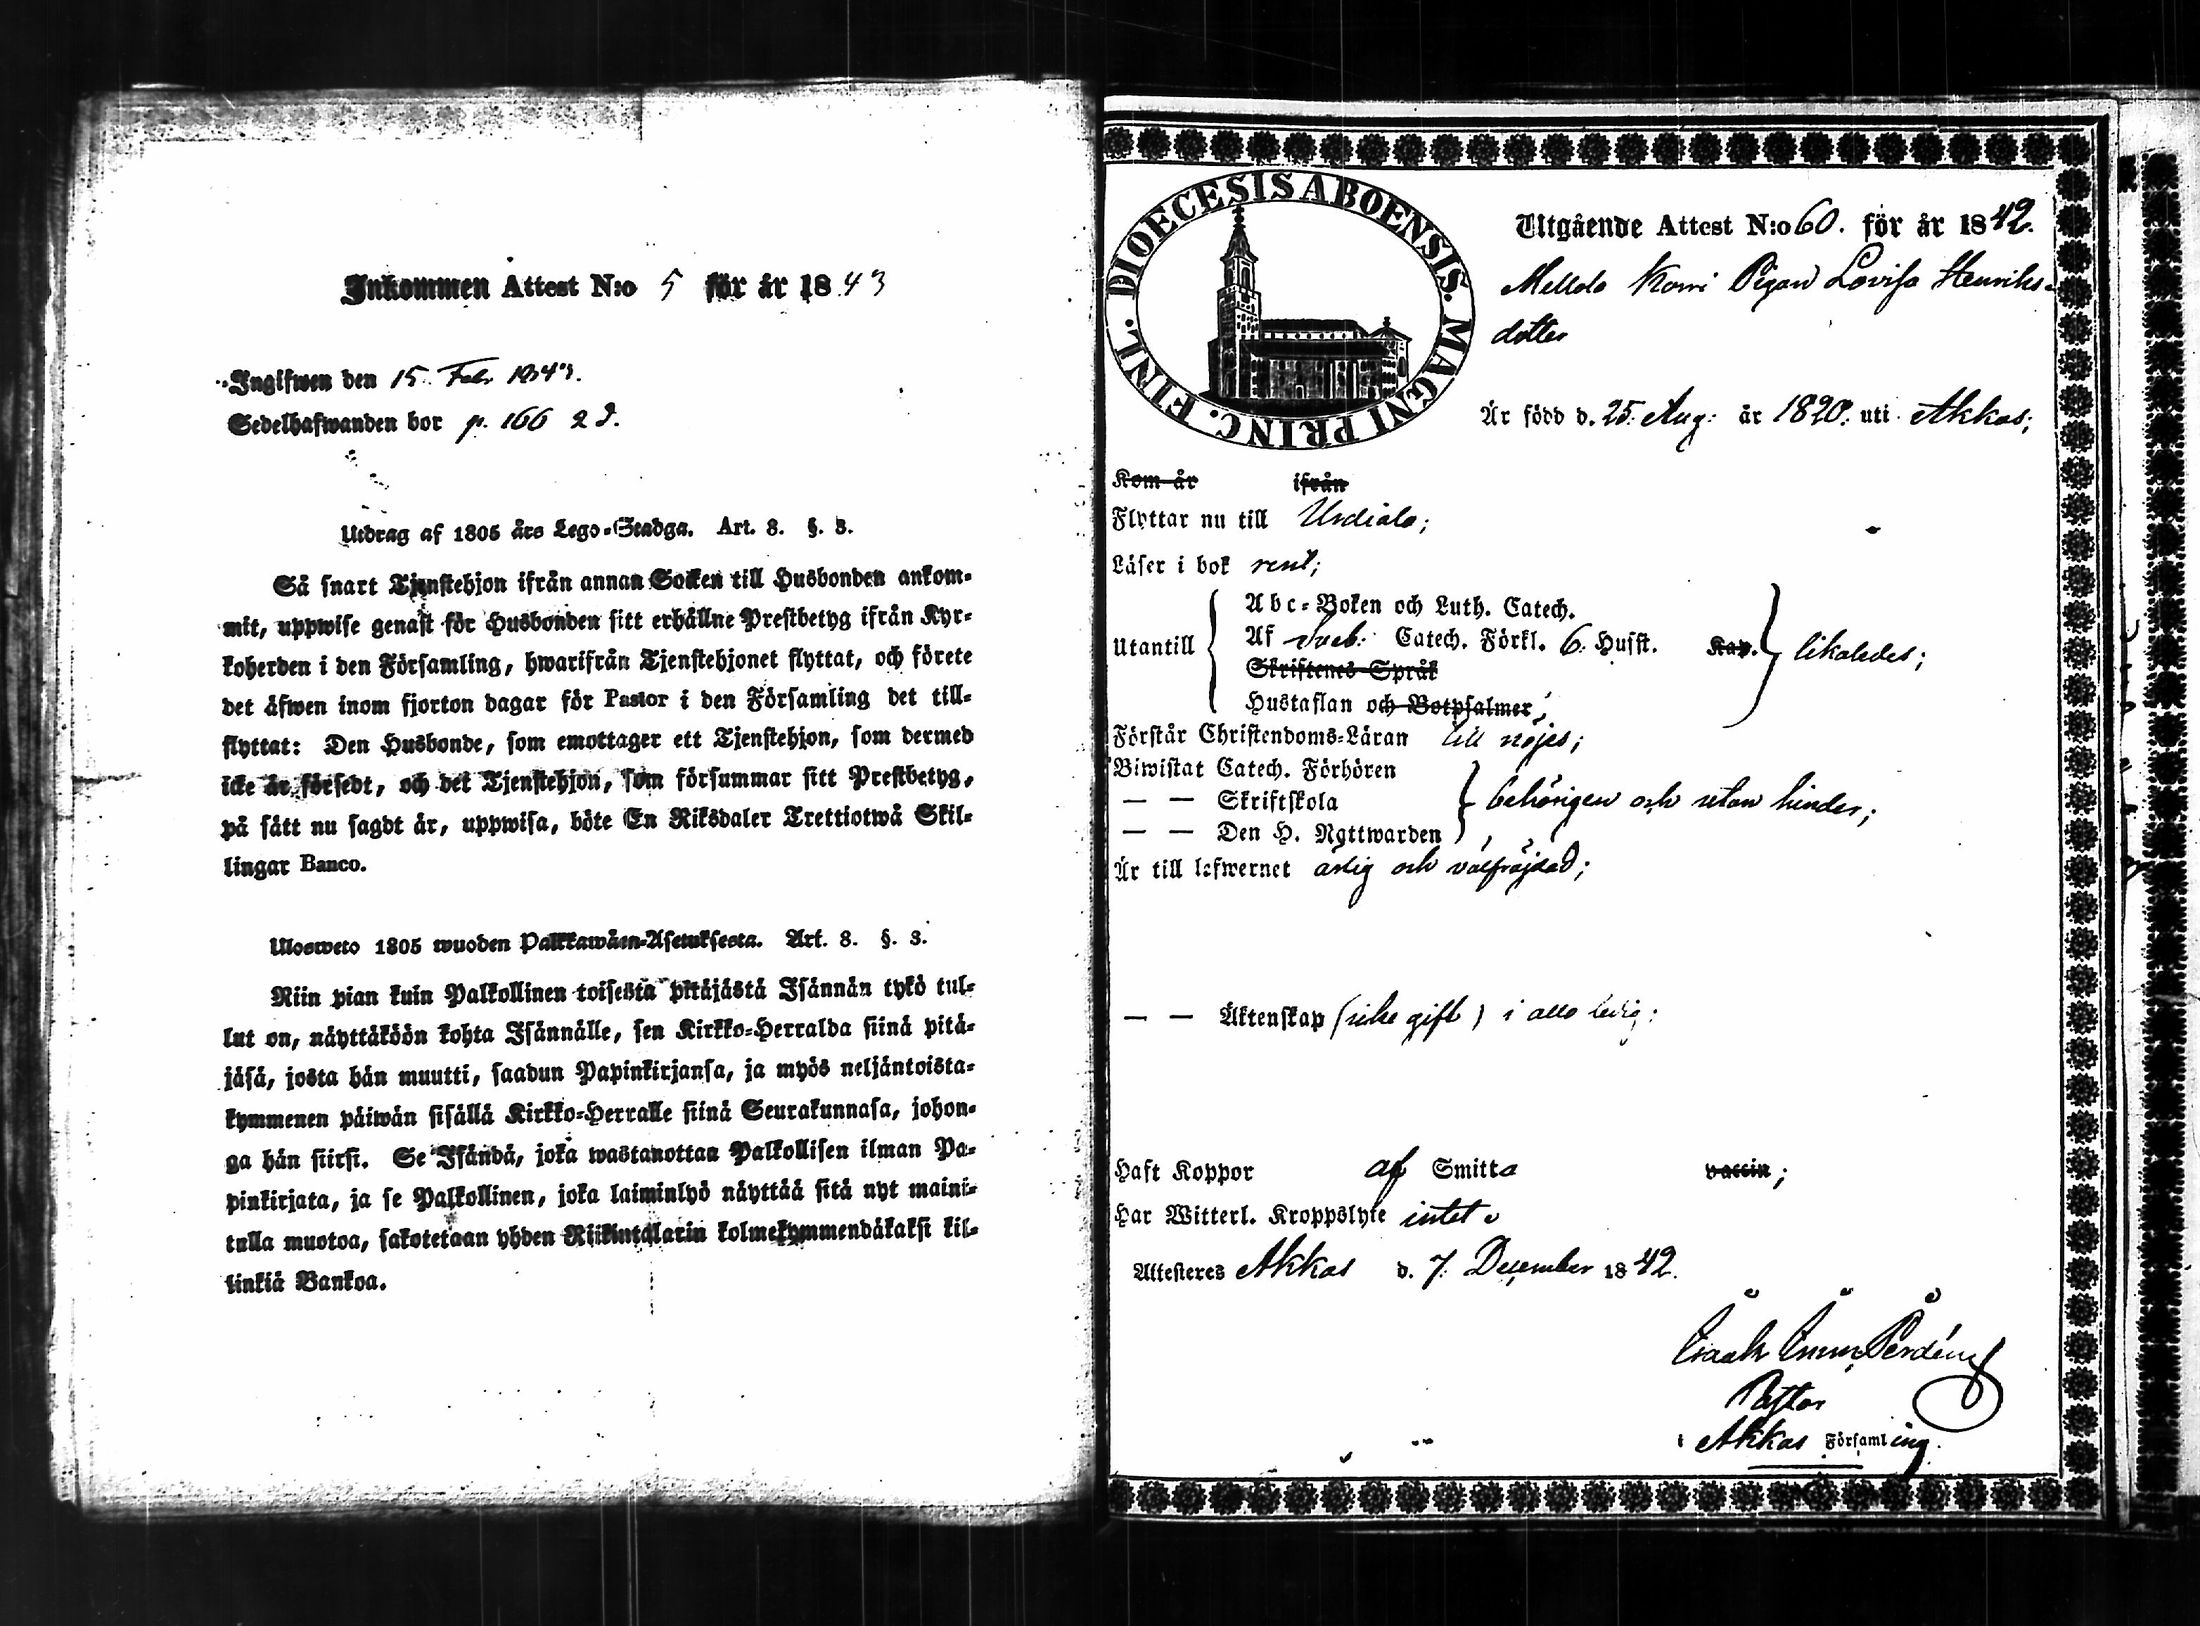 Inkommen Attest N:o 5 för år 1843
Ingifwen den 15. Febr. 1843.
Sedelhafwanden bor p. 166 2 d.
Utdrag af 1805 års Lego-Stadga. Art. 8. §. 3.
Så snart Tjenstehjon ifrån annan Socken till Husbonden ankom-
mit, uppwise genast för Husbonden sitt erhållne Prestbetyg ifrån Kyr-
koherden i den Församling, hwarifrån Tjenstehjonet flyttat, och förete
det äfwen inom fjorton dagar för Pastor i den Församling det till-
flyttat: Den Husbonde, som emottager ett Tjenstehjon, som dermed
icke är försedt, och det Tjenstehjon, som försummar sitt Prestbetyg,
på sätt nu sagdt är, uppwisa, böte En Riksdaler Trettiotwå Skil-
lingar Banco.
Ulosweto 1805 wuoden Palkkawäen-Asetuksesta. Art. 8. §. 3.
Niin pian kuin Palkollinen toisesta pitäjästä Isännän tykö tul-
lut on, näyttäköön kohta Isännälle, sen Kirkko-Herralda siinä pitä-
jäsä, josta hän muutti, saadun Papinkirjansa, ja myös neljäntoista-
kymmenen päiwän sisällä Kirkko-Herralle siinä Seurakunnasa, johon-
ga hän siirsi. Se Isändä, joka wastanottaa Palkollisen ilman Pa-
pinkirjata, ja se Palkollinen, joka laiminlyö näyttää sitä nyt maini-
tulla muotoa, sakotetaan yhden Riikintalarin kolmekymmendäkaksi kil-
linkiä Bankoa.
DIOECESIS ABOENSIS. MAGNI PRINC. FINL.
Utgående Attest N:o 60. för år 1842.
Mellola Korri Pigan Lovisa Henriks-
dotter
Är född d. 25. Aug: år 1820: uti Akkas;
Kom år ifrån
Flyttar nu till Urdiala;
Läser i bok rent;
Utantill
Abc-Boken och Luth. Catech.
Af Sveb: Catech. Förkl. 6. Hufst. Kap.
Skriftenes Språk
Hustaflan och Botpsalmer;
likaledes;
Förstår Christendoms-Läran till nöjes;
Biwistat Catech. Förhören
— — Skriftskola
— — Den H. Nattwarden
behörigen och utan hinder;
Är till lefwernet ärlig och välfräjdad;
— — Äktenskap (icke gift) i allo ledig;
Haft Koppor af Smitta vaccin;
Har Witterl. Kroppslyte intet.
Attesteres Akkas d. 7. December 1842.
Pastor
i Akkas Församling.